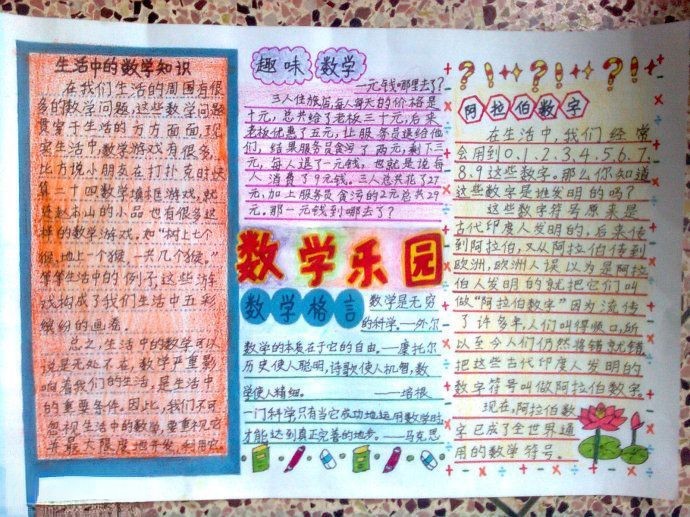 生活中的数学知识
在我们生活的周围有很
多的数学问题,这些数学问题
贯穿于生活的方方面面,现
实生活中,数学游戏有很多,
比方说小朋友在打扑克时快
算二十四数学填框游戏,就
连赵本山的小品也有很多这
样的数学游戏。如“树上七个
猴,地上一个猴,一共几个猴。”
等等生活中的例子,这些游
戏构成了我们生活中五彩
缤纷的画卷。
总之,生活中的数学可以
说是无处不在,数学严重影
响着我们的生活,是生活中
的重要条件。因此,我们不可
忽视生活中的数学,要重视它
并最大限度地开发、利用它
趣味数学
一元钱哪里去了?
三人住旅馆,每人每天的价格是
十元,总共给了老板三十元,后来
老板优惠了五元,让服务员退给他
们,结果服务员贪污了两元,剩下三
元,每人退了一元钱。也就是说每
人消费了9元钱。三人总共花了27
元,加上服务员贪污的2元总共29
元。那一元钱到哪去了?
数学乐园
数学格言
数学是无穷
的科学。——外尔
数学的本质在于它的自由。——康托尔
历史使人聪明,诗歌使人机智,数
学使人精细。——培根
一门科学只有当它成功地运用数学时,
才能达到真正完善的地步。——马克思
阿拉伯数字
在生活中,我们经常
会用到0.1.2.3.4.5.6.7.
8.9这些数字。那么你知道
这些数字是谁发明的吗?
这些数字符号原来是
古代印度人发明的,后来传
到阿拉伯,又从阿拉伯传到
欧洲,欧洲人误以为是阿拉
伯人发明的就把它们叫
做“阿拉伯数字”因为流传
了许多年,人们叫得顺口,所
以至今人们仍然将错就错,
把这些古代印度人发明的
数字符号叫做阿拉伯数字。
现在,阿拉伯数
字已成了全世界通
用的数学符号。